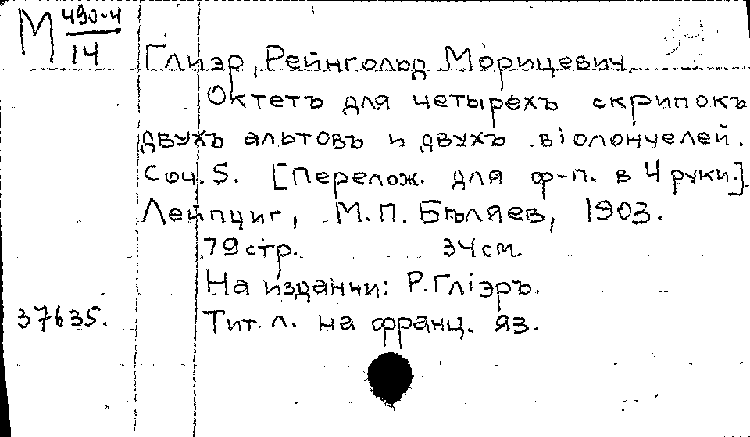 М 490-4
14
Глиэр, Рейнгольд Морицевич.
Октетъ для четырехъ скрипокъ
двухъ альтовъ и двухъ віолончелей.
Соч. 5. [Перелож. для ф-п. в 4 руки.]
Лейпциг, М. П. Бѣляев, 1903.
79 стр. 34 см.
На издании: Р. Гліэръ.
37635. Тит. л. на франц. яз.